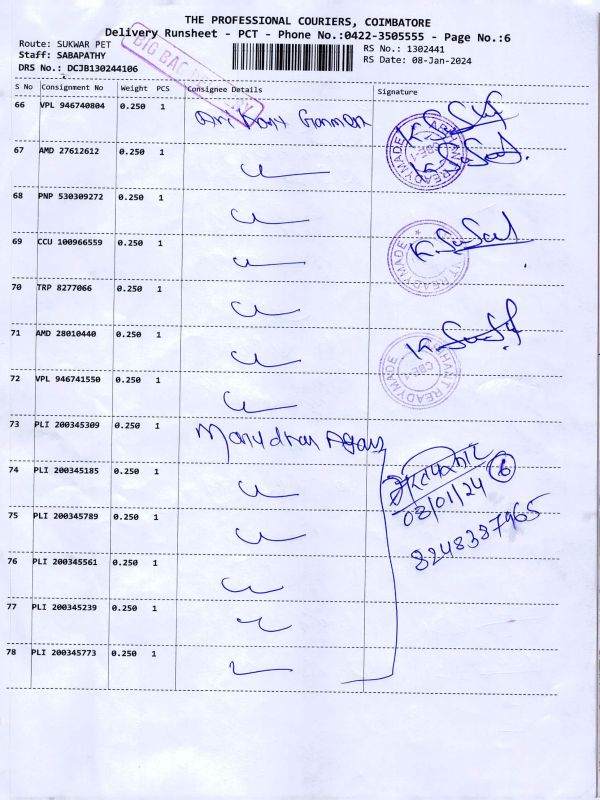 THE PROFESSIONAL COURIERS, COIMBATORE
Delivery Runsheet - PCT - Phone No.:0422-3505555 - Page No.:6
Route: SUKWAR PET
RS No.: 1302441
Staff: SABAPATHY
RS Date: 08-Jan-2024
DRS No.: DCJB130244106
BIG BAG
S No Consignment No Weight PCS Consignee Details Signature
66 VPL 946740804 0.250 1
67 AMD 27612612 0.250 1
68 PNP 530309272 0.250 1
69 CCU 100966559 0.250 1
70 TRP 8277066 0.250 1
71 AMD 28010440 0.250 1
72 VPL 946741550 0.250 1
73 PLI 200345309 0.250 1
74 PLI 200345185 0.250 1
6
08/01/24
75 PLI 200345789 0.250 1
8248387965
76 PLI 200345561 0.250 1
77 PLI 200345239 0.250 1
78 PLI 200345773 0.250 1